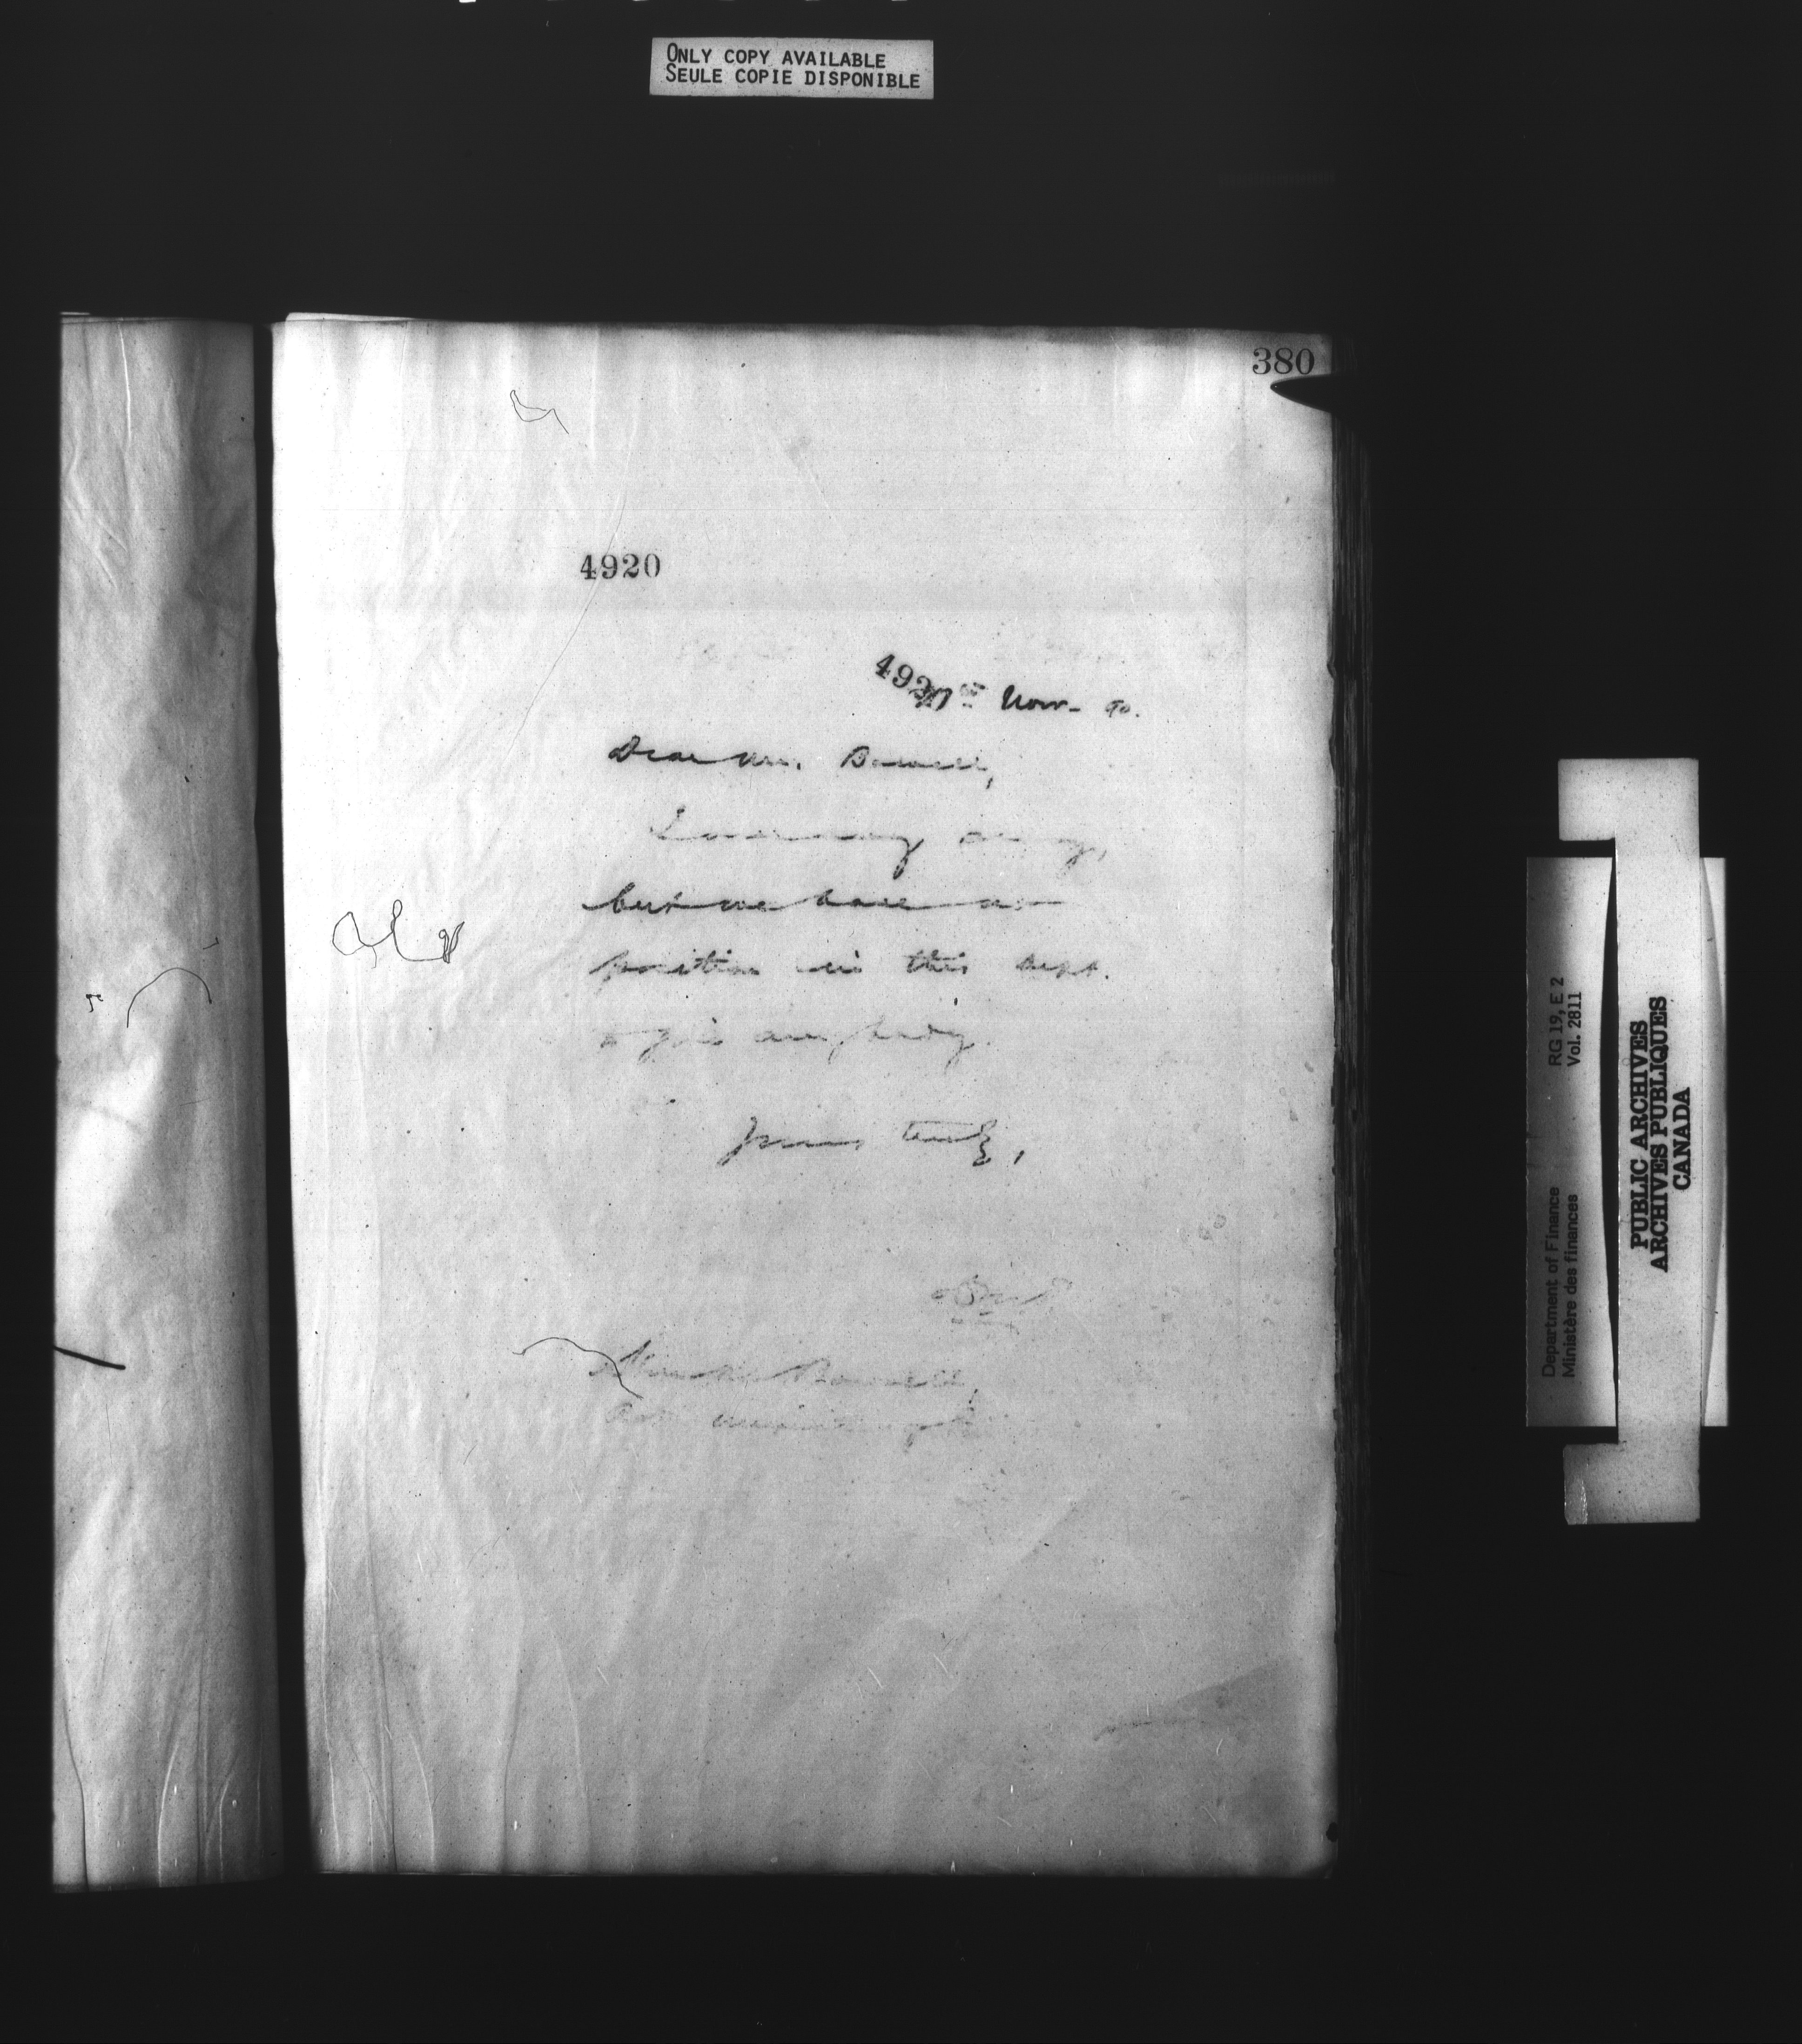 ONLY COPY AVAILABLE
SEULE COPIE DISPONIBLE
380
4920
492
Nov- 90.
Dear Mr. Bowell,
I am very
but we have no
position in this Dept.
to give anybody.
Yours truly,
Bowell,
RG 19, E 2
Vol. 2811
Department of Finance
Ministère des finances
PUBLIC ARCHIVES
ARCHIVES PUBLIQUES
CANADA